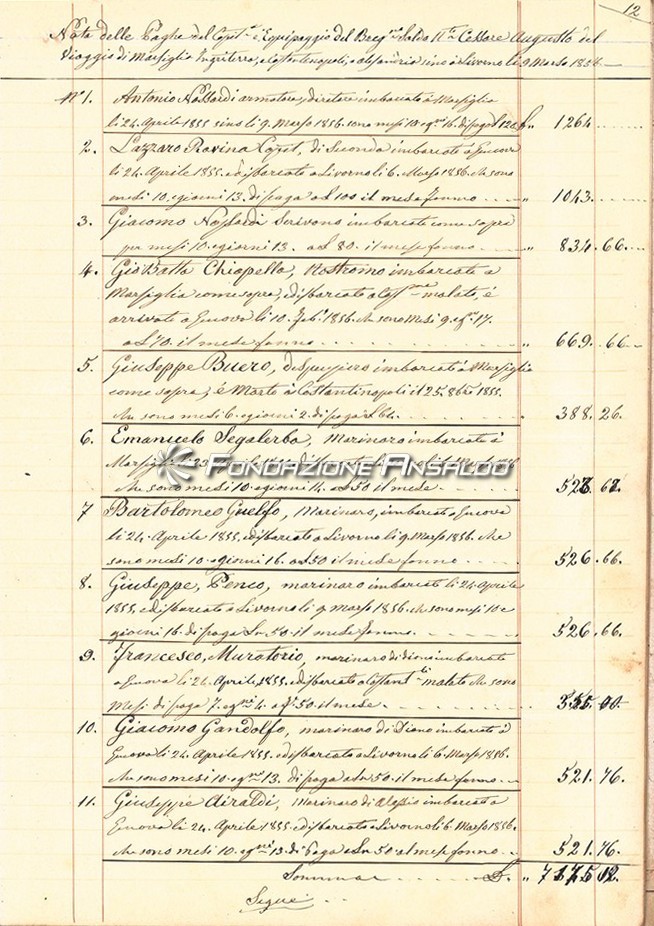 12
Nota delle Paghe del Capit.º e Equipaggio del Brig.no Sardo Il Cesare Augusto del
Viaggio di Marsiglia Ingriterra, e Costantinopoli, e Alesandria sino a Livorno li 9 Marzo 1856
Nº 1. Antonio Nattardi armatore, diretore imbarcato à Marsiglia
li 24 Aprile 1855 sino li 9. Marzo 1856. sono mesi 10. e g.ni 16. di paga £ 120 " 1264
2. Lazzaro Ravina Capit. di Seconda imbarcato a Genova
li 24. Aprile 1855. e disbarcato a Livorno li 6. Marzo 1856. che sono
mesi 10. e giorni 13. di paga a £ 100 il mese fanno " 1043.
3. Giacomo Scrivano imbarcato come sopra
per mesi 10. e giorni 13. a £ 80. il mese fanno " 834. 66.
4. Gio Batta Chiapella, Nostromo imbarcato a
Marsiglia come sopra, e disbarcato a malato, é
arrivato a Genova li 10. Feb. 1856. che sono Mesi 9. e g. 17.
a £ 70. il mese fanno 669. 66
5. Giuseppe Buero, imbarcato à Marsiglia
come sopra, é Morto à Costantinopoli il 25. 8bre 1855.
che sono mesi 6. e giorni 2. di paga a £ 64. 388. 26.
6. Emanuele Segalerba, Marinaro imbarcato à
FONDAZIONE ANSALDO
che sono mesi 10. e giorni 14. a £ 50 il mese
7 Bartolomeo Guelfo, Marinaro, imbarcato a Genova
li 24. Aprile 1855. e disbarcato a Livorno li 9. Marzo 1856. che
sono mesi 10. e giorni 16. a £ 50 il mese fanno " 526. 66.
8. Giuseppe Penco, marinaro imbarcato li 24 Aprile
1855. e disbarcato a Livorno li 9 Marzo 1856. che sono mesi 10 e
giorni 16. di paga a £n 50. il mese fanno " 526. 66.
9. Francesco, Muratorio, marinaro di Diano imbarcato
a Genova li 24. Aprile 1855, e disbarcato a Costant.li malato che sono
Mesi di paga 7. e g.ni 4. a 50. il mese
10. Giacomo Gandolfo, marinaro di Diano imbarcato à
Genova li 24. Aprile 1855. e disbarcato a Livorno li 6. Marzo 1856.
che sono mesi 10. e g.ni 13. di paga a £n 50. il mese fanno " 521. 76.
11. Giuseppe Airaldi, Marinaro di Alassio imbarcato a
Genova li 24 Aprile 1855. e disbarcato a Livorno li 6 Marzo 1856.
che sono mesi 10. e g.ni 13. di Paga a £n 50. al mese fanno " 521. 76.
Somma £. "
Segue